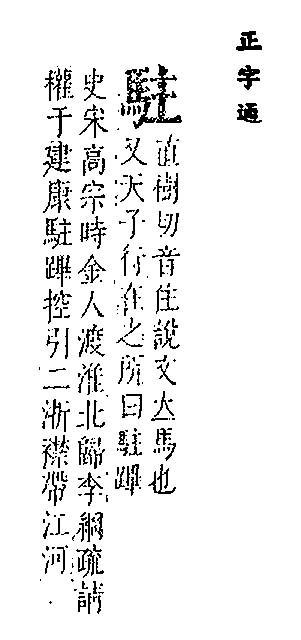 正字通
駐
直樹切音住說文立馬也
又天子行在之所曰駐蹕
史宋高宗時金人渡淮北歸李綱疏請
權于建康駐蹕控引二浙襟帶江河